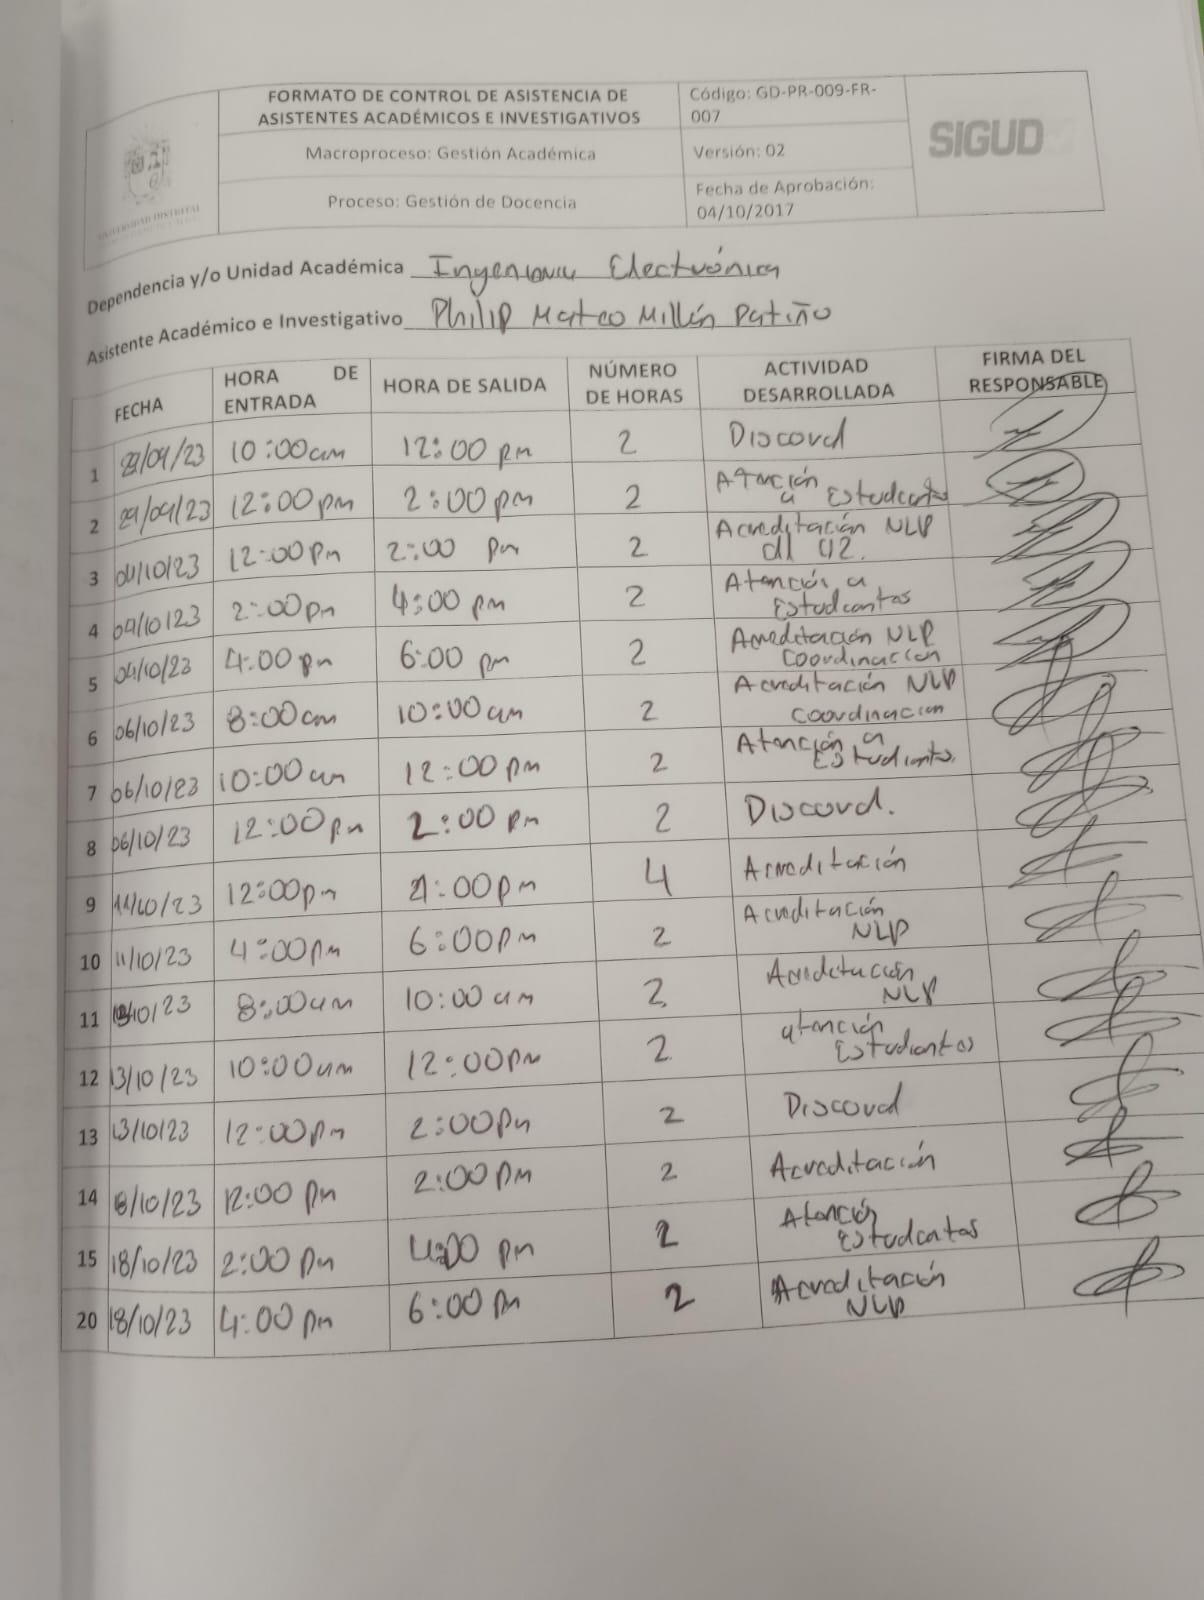 FORMATO DE CONTROL DE ASISTENCIA DE
ASISTENTES ACADÉMICOS E INVESTIGATIVOS
Macroproceso: Gestión Académica
Proceso: Gestión de Docencia
Código: GD-PR-009-FR-
007
Versión: 02
Fecha de Aprobación:
04/10/2017
SIGUD
UNIVERSIDAD DISTRITAL
Dependencia y/o Unidad Académica Ingenieria Electrónica
Asistente Académico e Investigativo Philip Mateo Millán Patiño
FECHA HORA DE ENTRADA HORA DE SALIDA NÚMERO DE HORAS ACTIVIDAD DESARROLLADA FIRMA DEL RESPONSABLE
1 29/09/23 10:00am 12:00 pm 2 Discord
2 29/09/23 12:00pm 2:00pm 2 Atención a Estudiantes
3 04/10/23 12:00pm 2:00 pm 2 Acreditación NLP
4 04/10/23 2:00pm 4:00 pm 2 Atención a Estudiantes
5 04/10/23 4:00 pm 6:00 pm 2 Acreditación NLP Coordinacion
6 06/10/23 8:00am 10:00am 2 Acreditación NLP Coordinacion
7 06/10/23 10:00am 12:00pm 2 Atención a Estudiantes.
8 06/10/23 12:00pm 2:00 pm 2 Discord.
9 11/10/23 12:00pm 4:00pm 4 Acreditación
10 11/10/23 4:00pm 6:00pm 2 Acreditación NLP
11 13/10/23 8:00am 10:00am 2 Acreditación NLP
12 13/10/23 10:00am 12:00pm 2 atención Estudiantes
13 13/10/23 12:00pm 2:00pm 2 Discord
14 18/10/23 12:00 pm 2:00pm 2 Acreditación
15 18/10/23 2:00pm 4:00 pm 2 Atención Estudiantes
20 18/10/23 4:00 pm 6:00 pm 2 Acreditación NLP